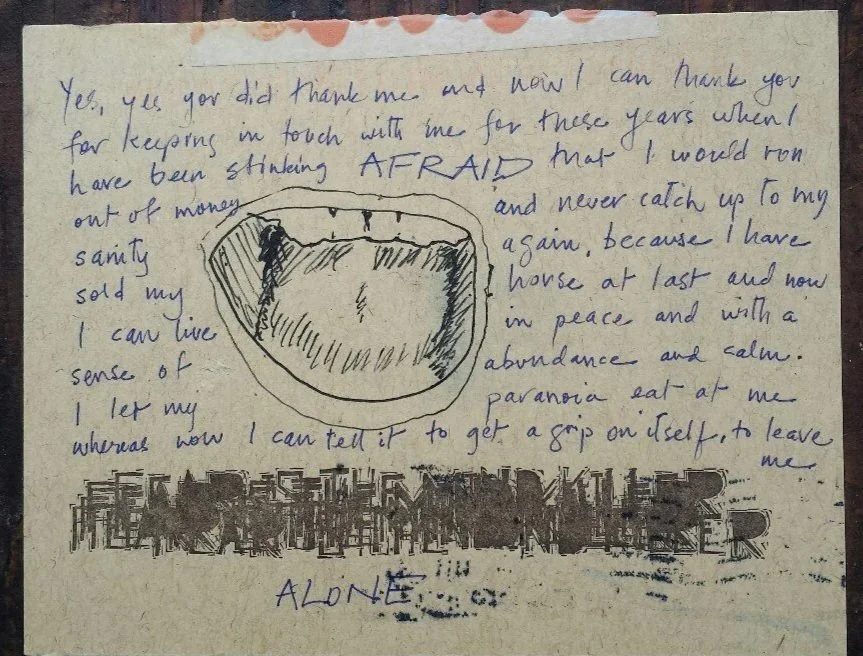 Yes, yes you did thank me and now I can thank you
for keeping in touch with me for these years when I
have been stinking AFRAID that I would run
out of money and never catch up to my
sanity again, because I have
sold my house at last and now
I can live in peace and with a
sense of abundance and calm.
I let my paranoia eat at me
whereas now I can tell it to get a grip on itself, to leave
me
FEAR IS THE MIND KILLER
ALONE